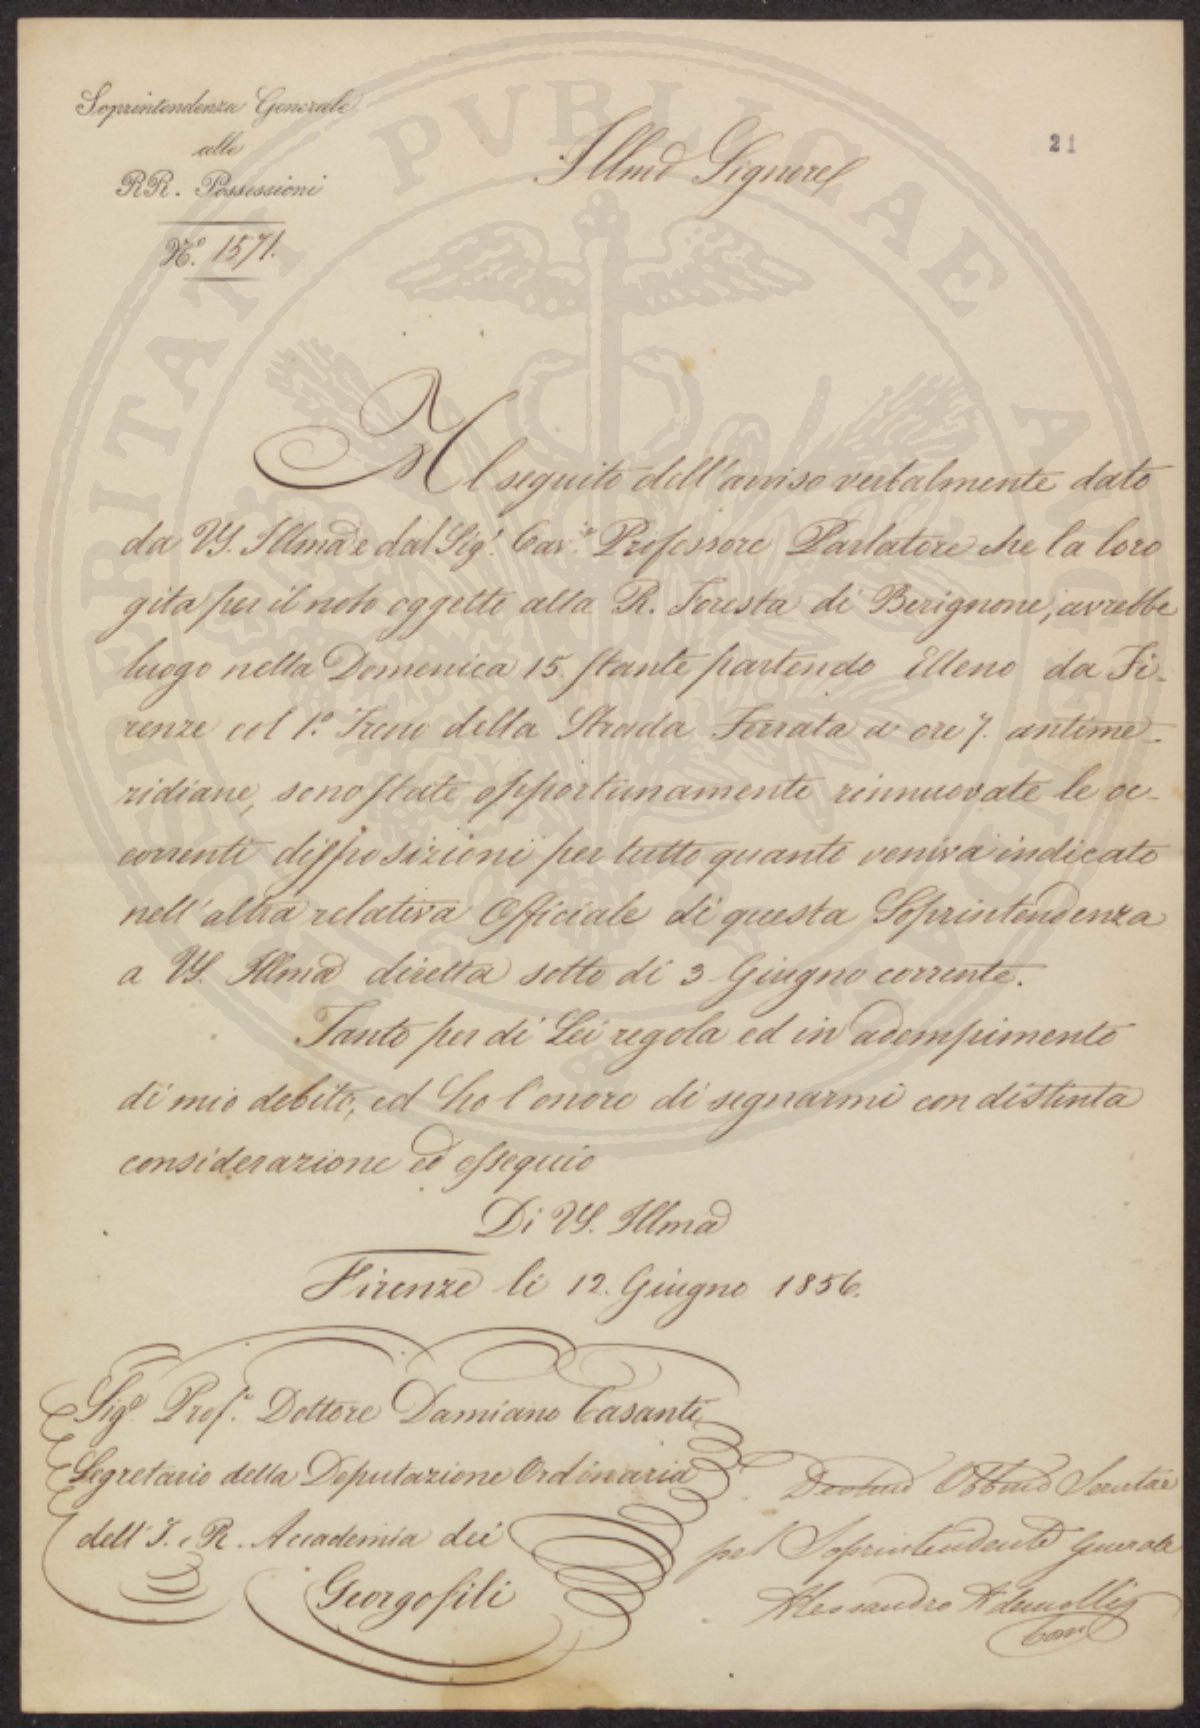 Soprintendenza Generale
alle
RR. Possessioni
N.° 1571.
21
Illmo Signore
Al seguito dell'avviso verbalmente dato
da VS. Illma e dal Sig.r Cav.re Professore Parlatore che la loro
gita per il noto oggetto alla R. Foresta di Berignone, avrebbe
luogo nella Domenica 15. stante partendo Elleno da Fi-
renze col 1.° Treno della Strada Ferrata a ore 7. antime-
ridiane, sono state opportunamente rinnuovate le oc-
correnti disposizioni per tutto quanto veniva indicato
nell'altra relativa Officiale di questa Soprintendenza
a VS. Illma diretta sotto di 3 Giugno corrente.
Tanto per di Lei regola ed in adempimento
di mio debito, ed ho l'onore di segnarmi con distinta
considerazione ed ossequio
Di VS. Illma
Firenze li 12. Giugno 1856.
Sig.r Prof.r Dottore Damiano Casanti
Segretario della Deputazione Ordinaria
dell'I. e R. Accademia dei
Georgofili
Devmo Obbmo Servitore
pel Soprintendente Generale
Alessandro Ademollo
SVBERITATI PVBLICAE